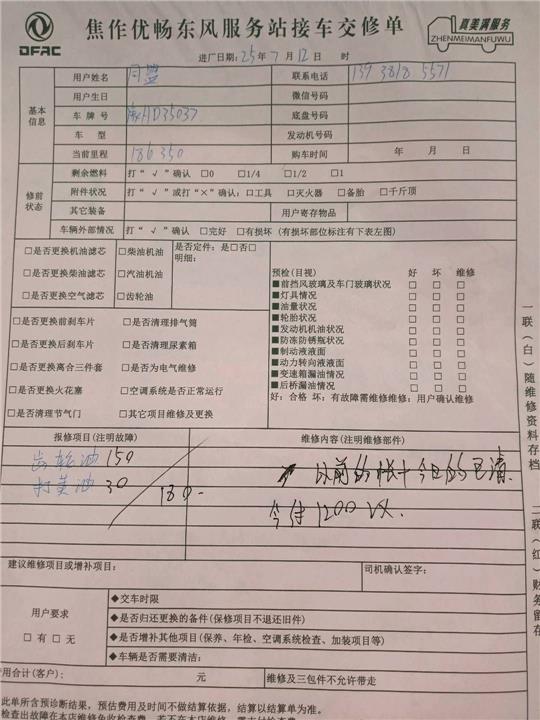 DFAC
焦作优畅东风服务站接车交修单
真美满服务
ZHENMEIMANFUWU
进厂日期：25年7月12日 时
基本信息
用户姓名 联系电话 139 3818 5571
用户生日 微信号码
车牌号 豫HD35037 底盘号码
车型 发动机号码
当前里程 186350 购车时间 年 月 日
修前状态
剩余燃料 打“√”确认 □0 □1/4 □1/2 □1
附件状况 打“√”或打“×”确认：□工具 □灭火器 □备胎 □千斤顶
其它装备 用户寄存物品
车辆外部情况 打“√”确认 □完好 □有损坏（有损坏部位标注有下表左图）
□是否更换机油滤芯 □柴油机油 是否定件：是□否□
明细：
□是否更换柴油滤芯 □汽油机油
□是否更换空气滤芯 □齿轮油
□是否更换前刹车片 □是否清理排气筒
□是否更换后刹车片 □是否清理尿素箱
□是否更换离合三件套 □是否为电气维修
□是否更换火花塞 □空调系统是否正常运行
□是否清理节气门 □其它项目维修及更换
预检（目视） 好 坏 维修
■前挡风玻璃及车门玻璃状况 □ □ □
■灯具情况 □ □ □
■油量状况 □ □ □
■轮胎状况 □ □ □
■发动机机油状况 □ □ □
■防冻防锈瓶状况 □ □ □
■制动液液面 □ □ □
■动力转向液液面 □ □ □
■变速箱漏油情况 □ □ □
■后桥漏油情况 □ □ □
好：合格 坏：有故障需维修维修：用户确认维修
报修项目（注明故障） 维修内容（注明维修部件）
齿轮油 150
打黄油 30
180-
以前的帐+今日的已清
今待1200
建议维修项目或增补项目： 司机确认签字：
用户要求
□有 □无
◆交车时限
◆是否归还更换的备件（保修项目不退还旧件）
◆是否增补其他项目（保养、年检、空调系统检查、加装项目等）
◆车辆是否需要清洁：
费用合计（客户）： 元 维修及三包件不允许带走
此单所含预诊断结果，预估费用及时间不做结算依据，结算以结算单为准。
一联（白）随维修资料存档
二联（红）财务留存